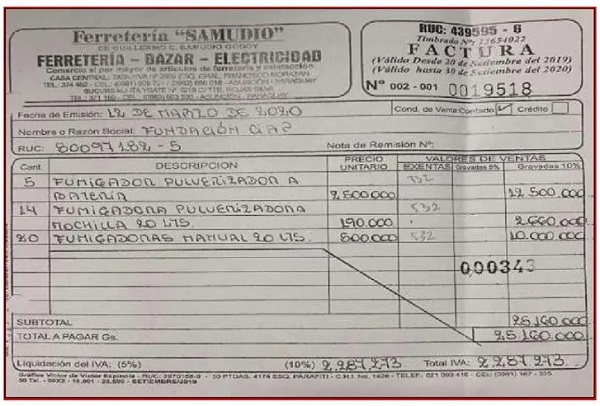 Ferretería "SAMUDIO"
DE GUILLERMO C. SAMUDIO GODOY
FERRETERÍA - BAZAR - ELECTRICIDAD
Comercio al por mayor de artículos de ferretería y calefacción
RUC: 439595 - 6
Timbrado Nº: 13654022
FACTURA
(Válido Desde 30 de Setiembre del 2019)
(Válido hasta 30 de Setiembre del 2020)
Nº 002 - 001 0019518
Fecha de Emisión: 12 DE MARZO DE 2020
Cond. de Venta Contado ✓ Crédito
Nombre o Razón Social: FUNDACIÓN CIAP
RUC: 80097182-5 Nota de Remisión Nº:
Cant. DESCRIPCION PRECIO UNITARIO VALORES DE VENTAS
EXENTAS Gravadas 5% Gravadas 10%
5 FUMIGADOR PULVERIZADOR A 532
BATERIA 2.500.000 12.500.000
14 FUMIGADORA PULVERIZADORA 532
MOCHILLA 20 LTS. 190.000 2.660.000
20 FUMIGADORAS MANUAL 20 LTS. 500.000 532 10.000.000
000343
SUBTOTAL 25.160.000
TOTAL A PAGAR Gs. 25.160.000
Liquidación del IVA: (5%) (10%) 2.287.273 Total IVA: 2.287.273